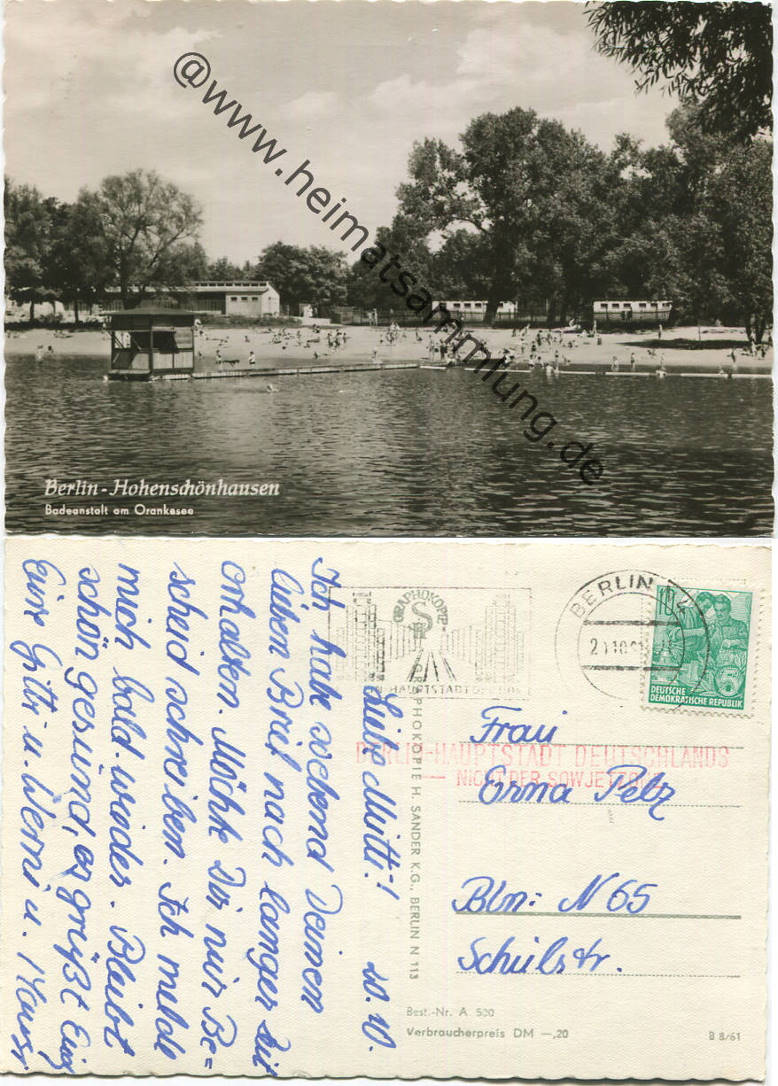 @www.heimatsammlung.de
Berlin-Hohenschönhausen
Badeanstalt am Orankesee
Liebe Mutti! 20.10.
Ich habe soebend Deinen
lieben Brief nach langer Zeit
erhalten. Möchte Dir nur Be=
scheid schreiben. Ich melde
mich bald wieder. Bleibt
schön gesund, es grüßt Euch
Eure Gitti u. Werni u.
GRAPHOKOPIE H. SANDER K.G., BERLIN N 113
GRAPHOKOPIE
HAUPTSTADT
BERLIN
10
5
DEUTSCHE
DEMOKRATISCHE REPUBLIK
BERLIN-HAUPTSTADT DEUTSCHLANDS
— NICHT DER SOWJETZONE
Frau
Erna Pelz
Bln: N 65
Schulstr.
Best.-Nr. A 500
Verbraucherpreis DM —,20
B 8/61